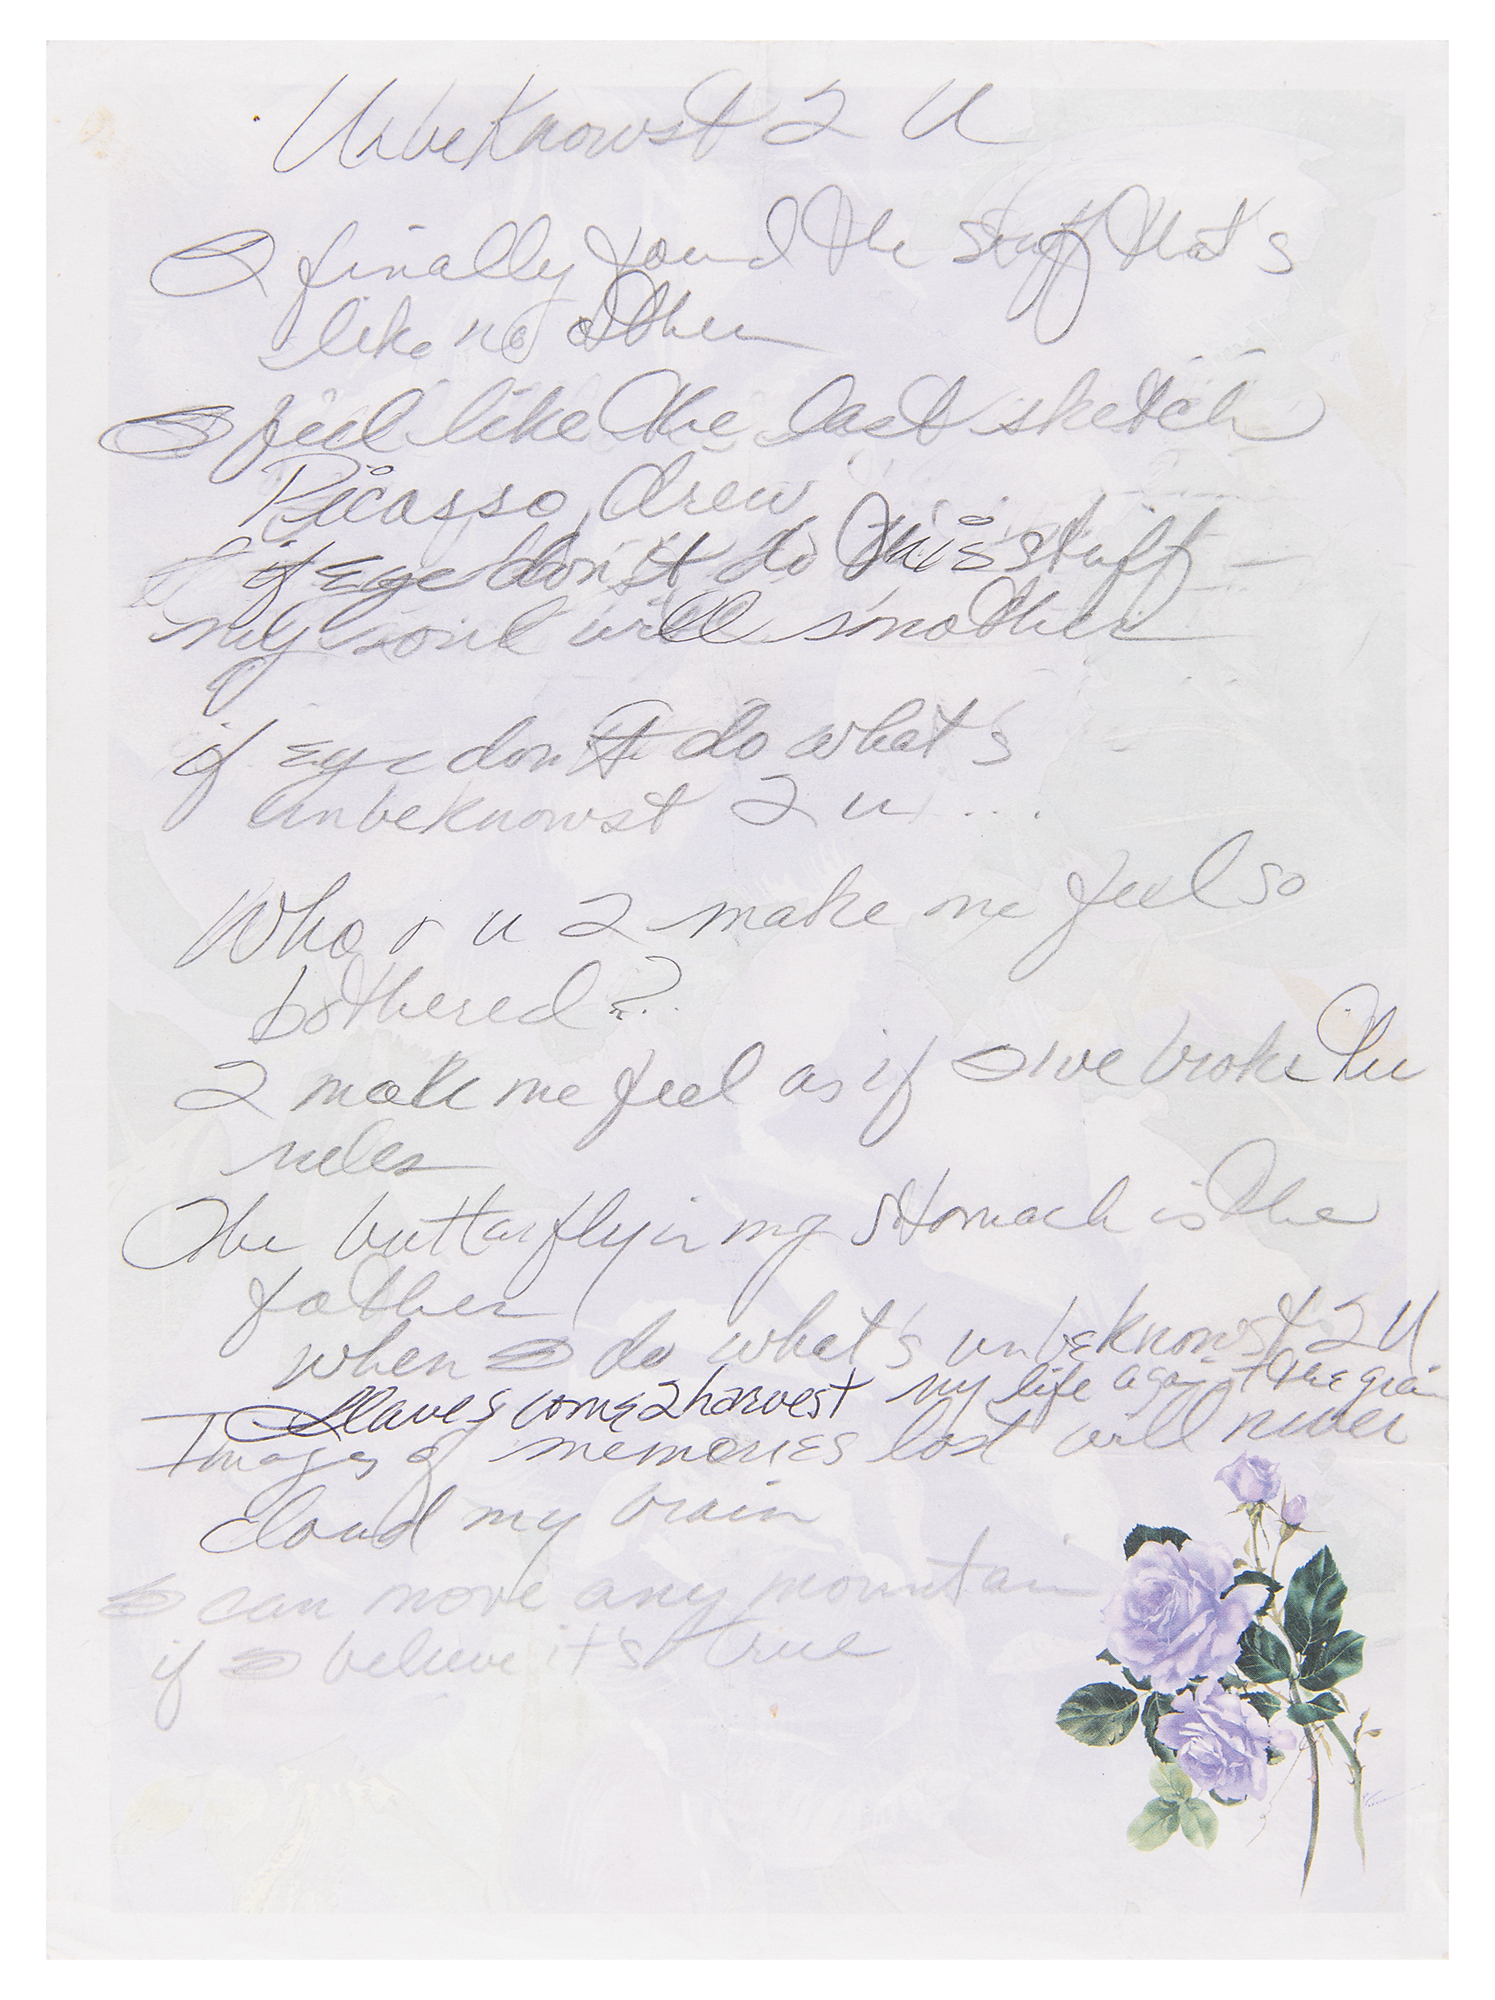 UnbeKnowst 2 U
👁 finally found the stuff that's
like no other
👁 feel like the last sketch
Picasso drew
if Eye don't do this stuff –
my soul will smother
if Eye don't do what's
unbeknowst 2 u ....
Who r u 2 make me feel so
bothered?..
2 make me feel as if 👁've broke the
rules
The butterfly in my stomach is the
father
when 👁 do what's unbeknowst 2 U
Slaves come 2 harvest my life against the grain
Images of memories lost will never
cloud my brain
👁 can move any mountain
if 👁 believe it's true